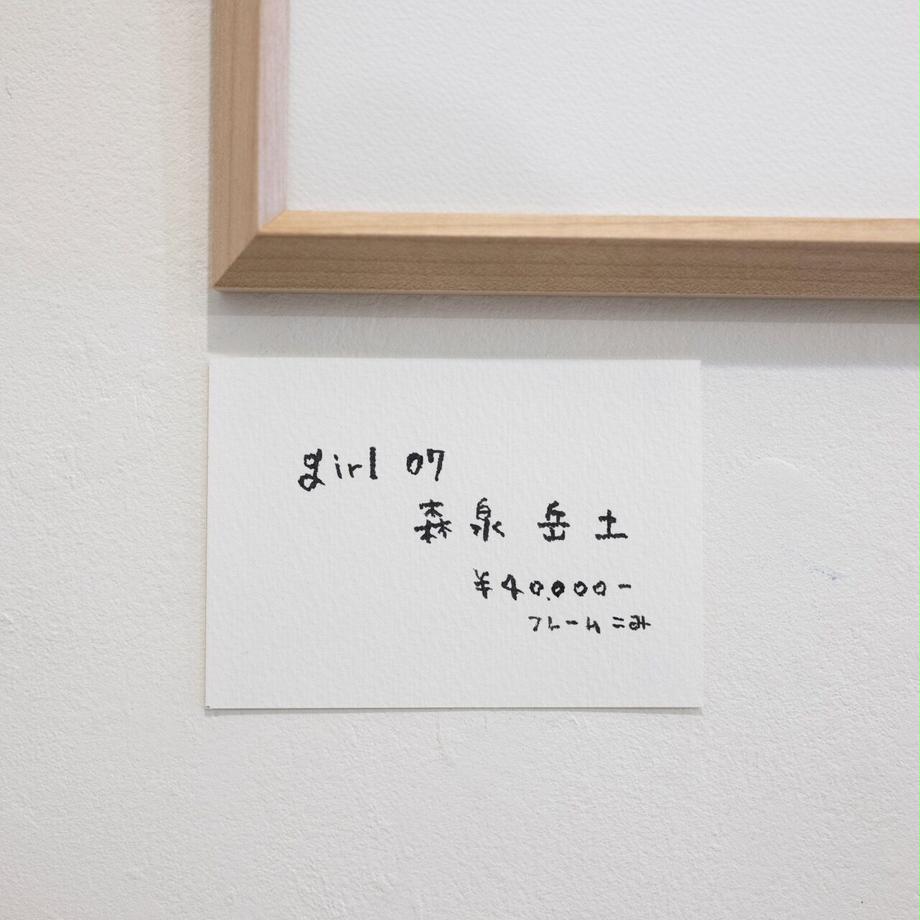 girl 07
森泉 岳土
¥40,000-
フレームこみ